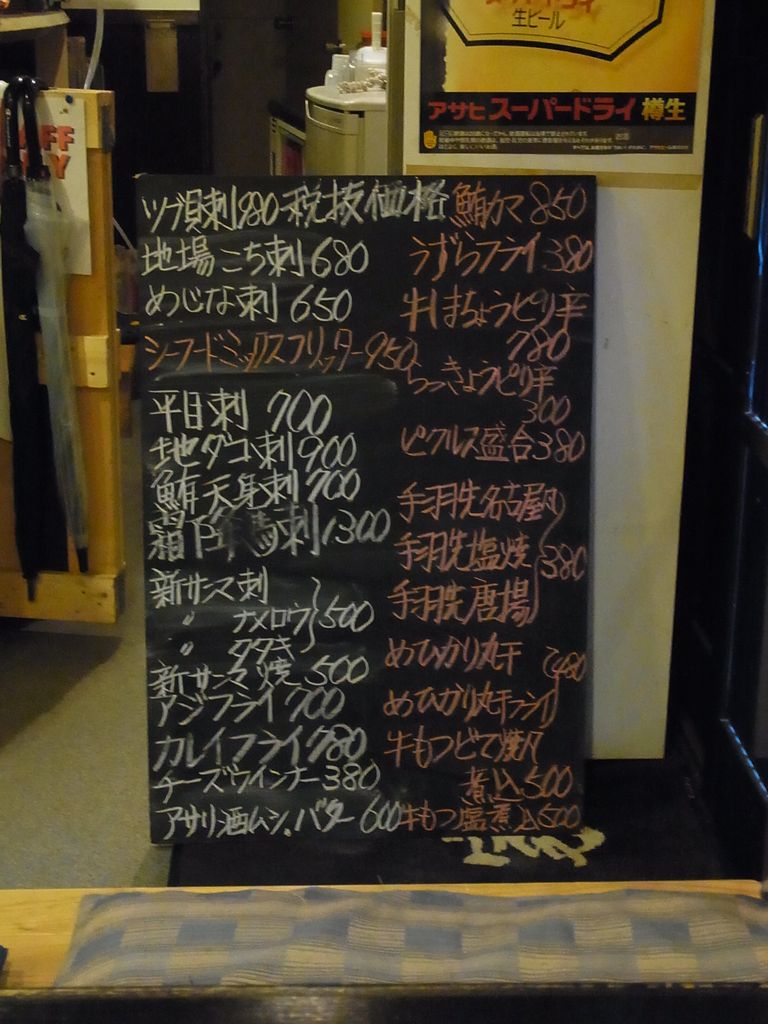 生ビール
アサヒ スーパードライ 樽生
ツブ貝刺 980 税抜価格
地場こち刺 680
めじな刺 650
シーフードミックスフリッター 950
平目刺 700
地ダコ刺 900
鮪天身刺 700
霜降馬刺 1300
新サンマ刺
〃 ナメロウ 500
〃 タタキ
新サンマ焼 500
アジフライ 700
カレイフライ 780
チーズウインナー 380
アサリ酒ムシ.バター 600
鮪カマ 850
うずらフライ 380
牛しまちょうピリ辛
780
らっきょうピリ辛
300
ピクルス盛合 380
手羽先名古屋風
手羽先塩焼 380
手羽先唐揚
めひかり丸干 480
めひかり丸干フライ
牛もつどて焼風
煮込 500
牛もつ塩煮込 500